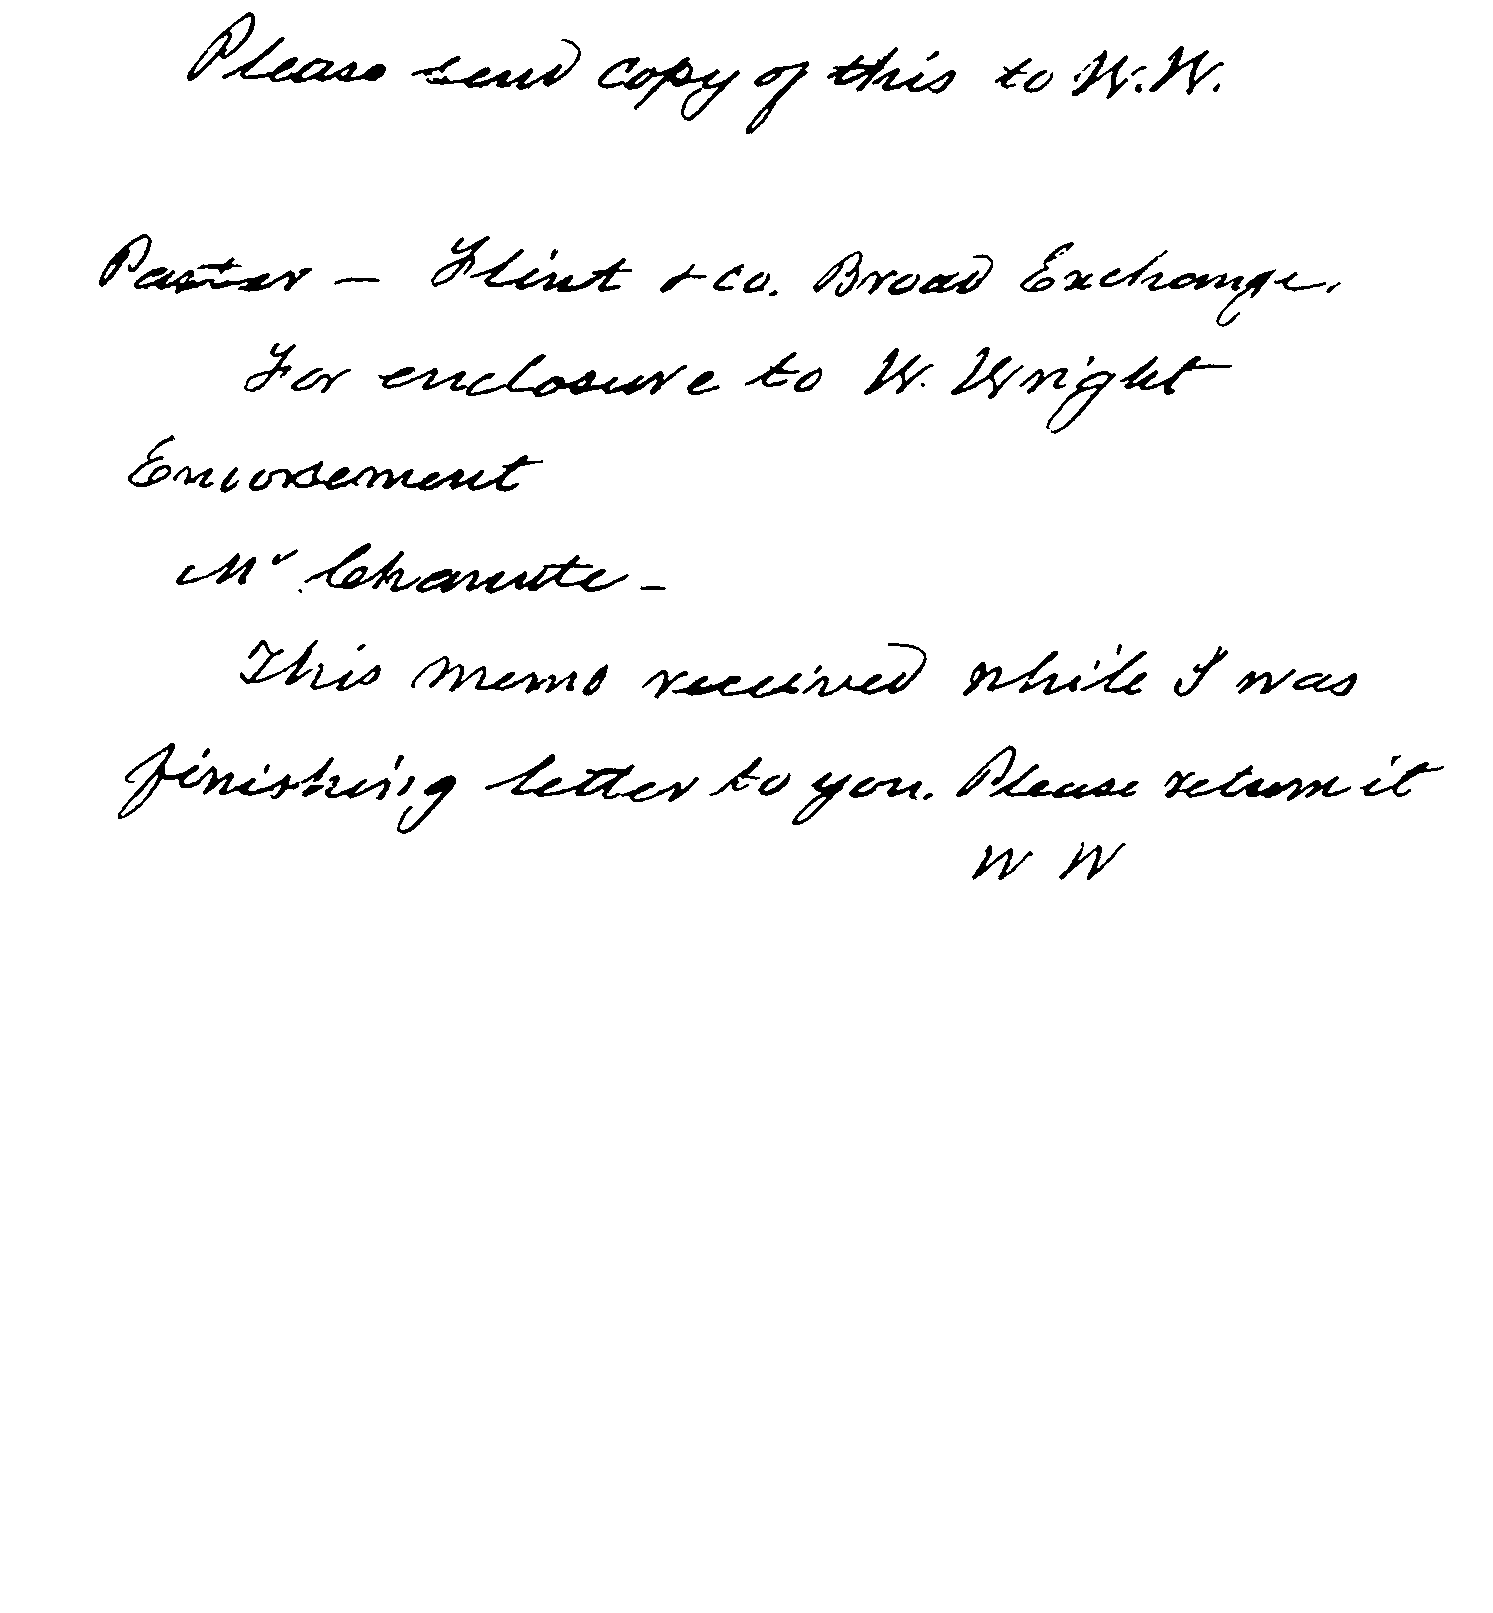 Please send copy of this to W.W.
Paster – Flint & Co. Broad Exchange.
For enclosure to W. Wright
Endorsement
Mr Chanute –
This memo received while I was
finishing letter to you. Please return it
W W